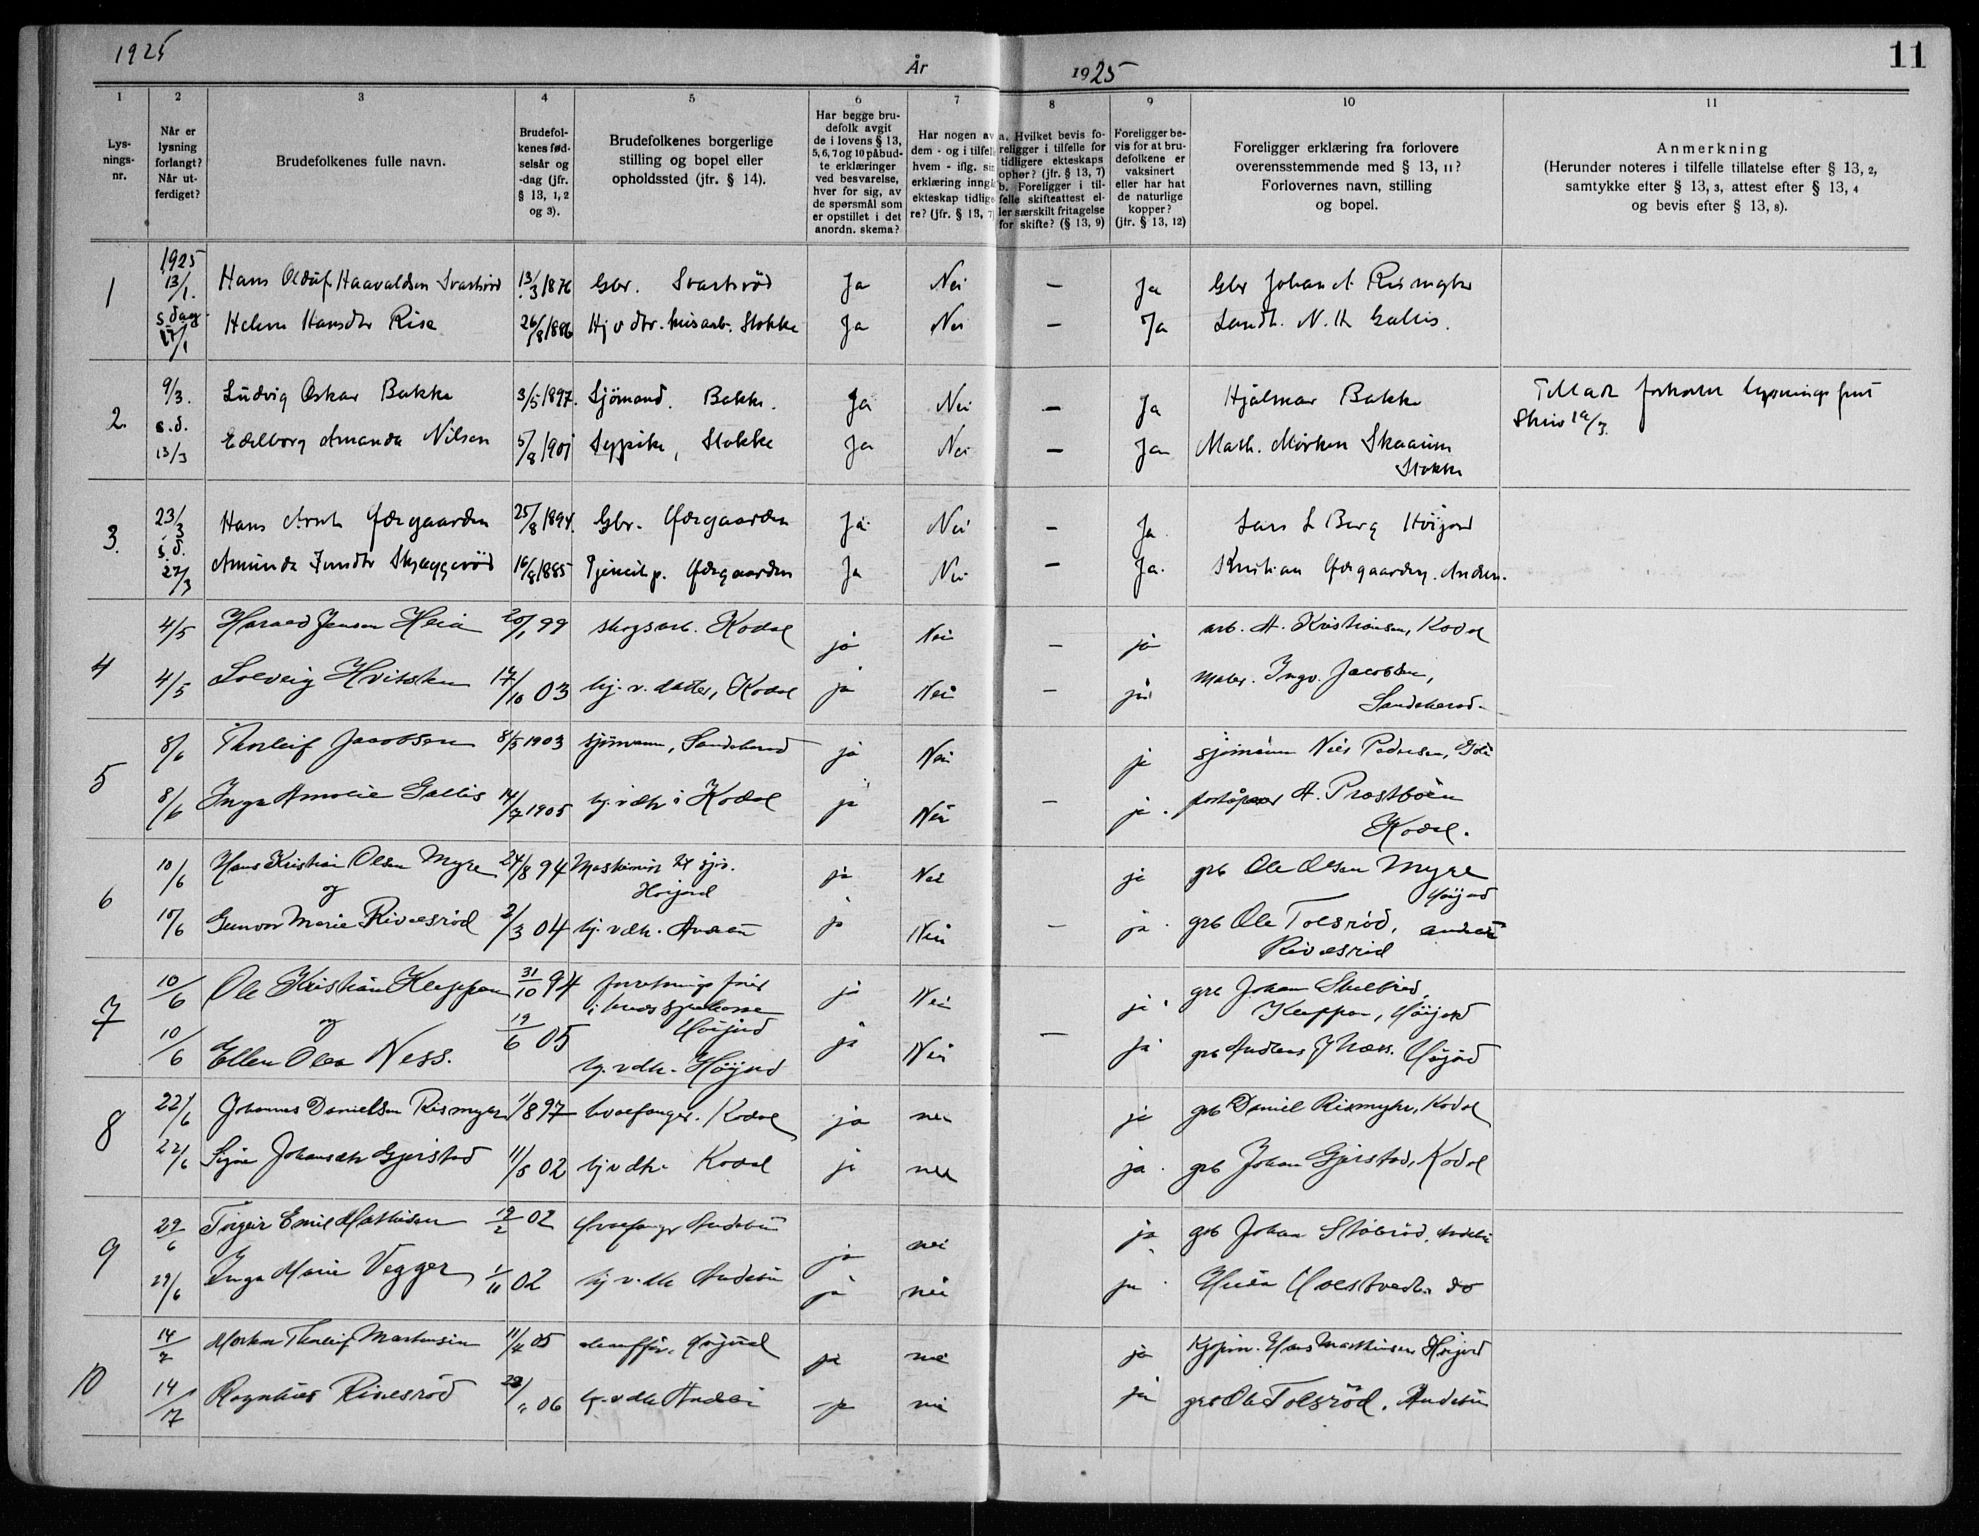 1925
År
1925
11
1 2 3 4 5 6 7 8 9 10 11
Lys-
nings-
nr.
Når er
lysning
forlangt?
Når ut-
ferdiget?
Brudefolkenes fulle navn.
Brudefol-
kenes fød-
selsår og
-dag (jfr.
§ 13, 1, 2
og 3).
Brudefolkenes borgerlige
stilling og bopel eller
opholdssted (jfr. § 14).
Har begge bru-
defolk avgit
de i lovens § 13,
5, 6, 7 og 10 påbud-
te erklæringer
ved besvarelse,
hver for sig, av
de spørsmål som
er opstillet i det
anordn. skema?
Har nogen av
dem - og i tilfell
hvem - iflg. sin
erklæring inngå
ekteskap tidlige
re? (jfr. § 13, 7)
a. Hvilket bevis fo-
religger i tilfelle for
tidligere ekteskaps
ophør? (jfr. § 13, 7)
b. Foreligger i til-
felle skifteattest el-
ler særskilt fritagelse
for skifte? (§ 13, 9)
Foreligger be-
vis for at bru-
defolkene er
vaksinert
eller har hat
de naturlige
kopper?
(jfr. § 13, 12)
Foreligger erklæring fra forlovere
overensstemmende med § 13, 11?
Forlovernes navn, stilling
og bopel.
Anmerkning
(Herunder noteres i tilfelle tillatelse efter § 13, 2,
samtykke efter § 13, 3, attest efter § 13, 4
og bevis efter § 13, 8).
1 1925 13/1. Hans Oluf Haavaldsen Svartsrød 13/3 1876 Gbr. Svartsröd Ja Nei — Ja Gbr Johan A. Rismyhr
s. dag 17/1 Helene Hansdtr Risa 26/8 1886 Hj v dtr. Stokke Ja Nei — Ja Landh. N. H. Gallis.
2. 9/3. Ludvig Oskar Bakke 3/5 1897. Sjömand. Bakke. Ja Nei — Ja Hjalmar Bakke Tillat forkortet lysnings frist
s.d. 13/3 Edelborg Amanda Nilsen 5/8 1901 Sypike, Stokke Ja Nei — Ja Math. Mörken Skaaum
Stokke
3. 23/3 Hans Arnt Gjærgaarden 25/8 1894. Gbr. Gjærgaarden Ja Nei — Ja. Lars L Berg Höijord
s.d. 27/3 Amunda Skjeggerød 16/8 1885 Tjenestp. Gjærgaarden Ja Nei — Ja. Kristian Gjærgaarden. Andeb.
4 4/5 Harald Jensen Heia 20/1 99 skogsarb. Kodal ja Nei — ja arb. A. Kristiansen, Kodal
4/5 Solveig Hvitstein 17/10 03 hj. v. datter, Kodal ja Nei — ja maler. Ingv. Jacobsen,
Sandeherad.
5 8/6 Thorleif Jacobsen 8/5 1903 sjømann, Sandeherad ja Nei ja sjømann Nils Pedersen,
8/6 Inga Amalie Gallis 14/7 1905 hj. v dtr i Kodal ja Nei — ja. poståpner A. Præstbøen
Kodal.
6 10/6 Hans Kristian Olsen Myre 24/8 94 Maskinist til sjøs.
Höijord ja Nei ja grb Ole Olsen Myre
Höijord
og
10/6 Gunvor Marie Rivelsrød 2/3 04 hj. v dtr. Andebu ja Nei — ja. grb Ole Tolsrød, Andebu
Rivelsrød
7 10/6 Ole Kristian Kleppan 31/10 94 forretningsfører
i Höijord ja Nei ja. grb Johan
Kleppan, Höijord
og
10/6 Ellen Olea Ness. 19/6 05 hj. v dtr. Höijord ja Nei — ja grb Andreas J Næss. Höijord
8 22/6 Johannes Danielsen Rismyhr 1/8 97 hvalfanger. Kodal ja nei ja grb Daniel Rismyhr, Kodal
22/6 Signe Johansdtr Gjerstad 11/5 02 hj v dtr. Kodal ja nei ja. grb Johan Gjerstad, Kodal
9 29/6 Torgeir Emil Mathisen 19/2 02 Hvalfanger Andebu ja nei ja grb Johan Stålerød, Andebu
29/6 Inga Marie Vegger 1/11 02 hj v. dtr Andebu ja nei ja do
10 14/7 Morten Thorleif Martinsen 11/4 05 chauffør, Höijord ja nei ja Kjøpm. Hans Martinsen Höijord
14/7 Ragnhild Rivelsrød 06 hj. v dtr Andebu ja nei ja grb Ole Tolsrød, Andebu